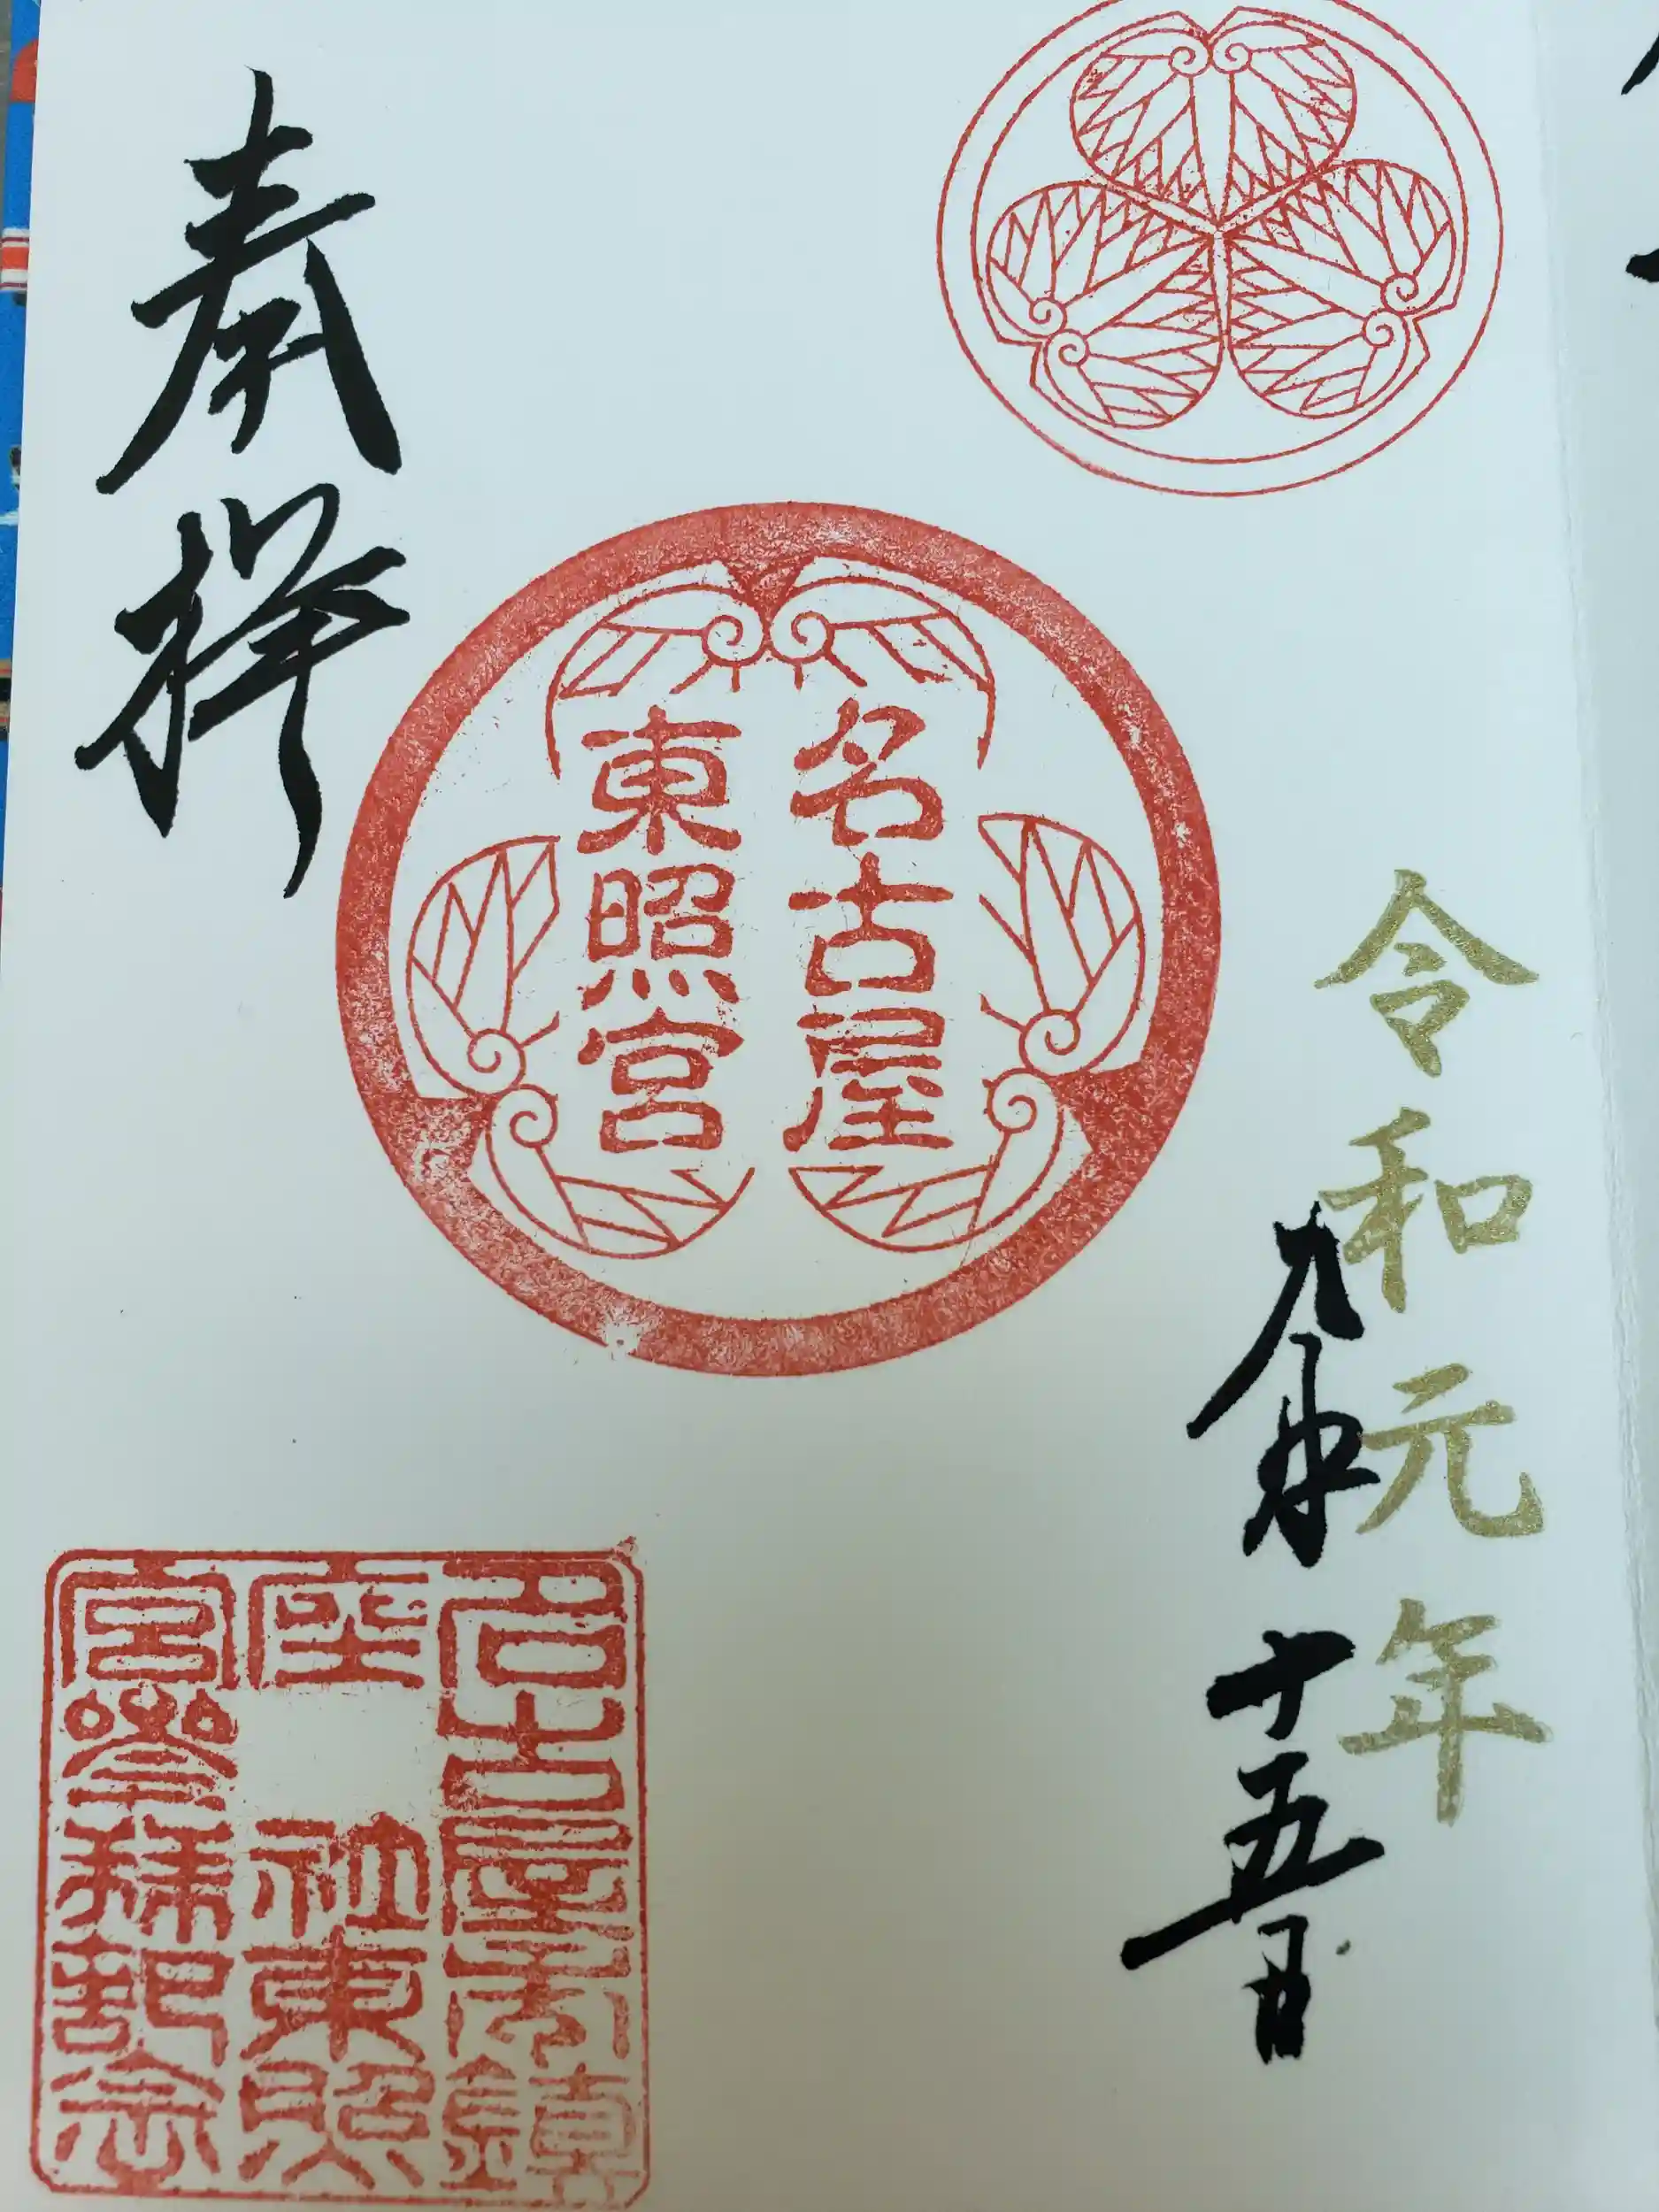 令和元年
九月十五日
名古屋
東照宮
奉拝
名古屋市鎮
座 社東照
宮参拝記念